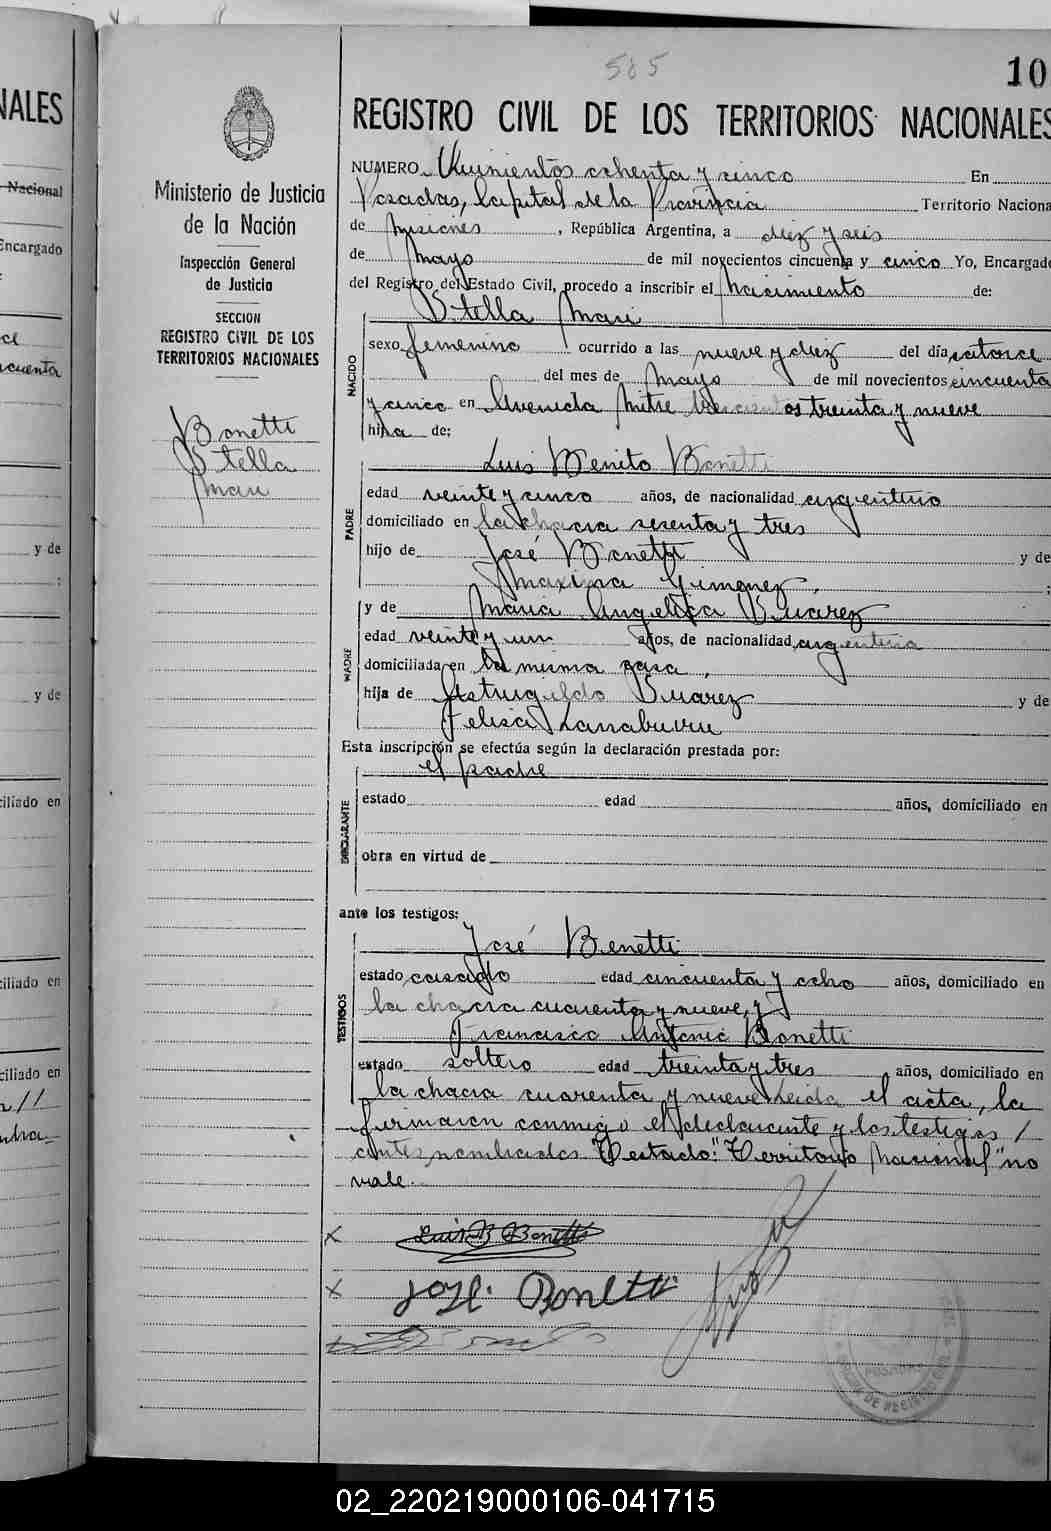 NALES
Nacional
Encargado
cuenta
y de
y de
ciliado en
ciliado en
ciliado en
Ministerio de Justicia
de la Nación
Inspección General
de Justicia
SECCION
REGISTRO CIVIL DE LOS
TERRITORIOS NACIONALES
Bonetti
Stella
Mari
585
10
REGISTRO CIVIL DE LOS TERRITORIOS NACIONALES
NUMERO Quinientos ochenta y cinco En
Posadas, Capital de la Provincia Territorio Naciona
de Misiones, República Argentina, a diez y seis
de Mayo de mil novecientos cincuenta y cinco Yo, Encargado
del Registro del Estado Civil, procedo a inscribir el Nacimiento de:
Stella Mari
NACIDO
sexo femenino ocurrido a las nueve y diez del día catorce
del mes de Mayo de mil novecientos cincuenta
y cinco en Avenida Mitre trescientos treinta y nueve
hija de:
Luis Benito Bonetti
PADRE
edad veinte y cinco años, de nacionalidad argentino
domiciliado en la chacra sesenta y tres
hijo de José Bonetti y de
Maxima Gimenez, ;
y de Maria Angelica Suarez
MADRE
edad veinte y un años, de nacionalidad argentina
domiciliada en la misma casa,
hija de Suarez y de
Felisa
Esta inscripción se efectúa según la declaración prestada por:
el padre
DECLARANTE
estado edad años, domiciliado en
obra en virtud de
ante los testigos:
José Bonetti
TESTIGOS
estado casado edad cincuenta y ocho años, domiciliado en
la chacra cuarenta y nueve, y
Francisco Antonio Bonetti
estado soltero edad treinta y tres años, domiciliado en
la chacra cuarenta y nueve. Leida el acta, la
firmaron conmigo el declarante y los testigos /
antes nombrados. Testado: "Territorio Nacional" no
vale.
Luis B Bonetti
José Bonetti
POSADAS
02_220219000106-041715